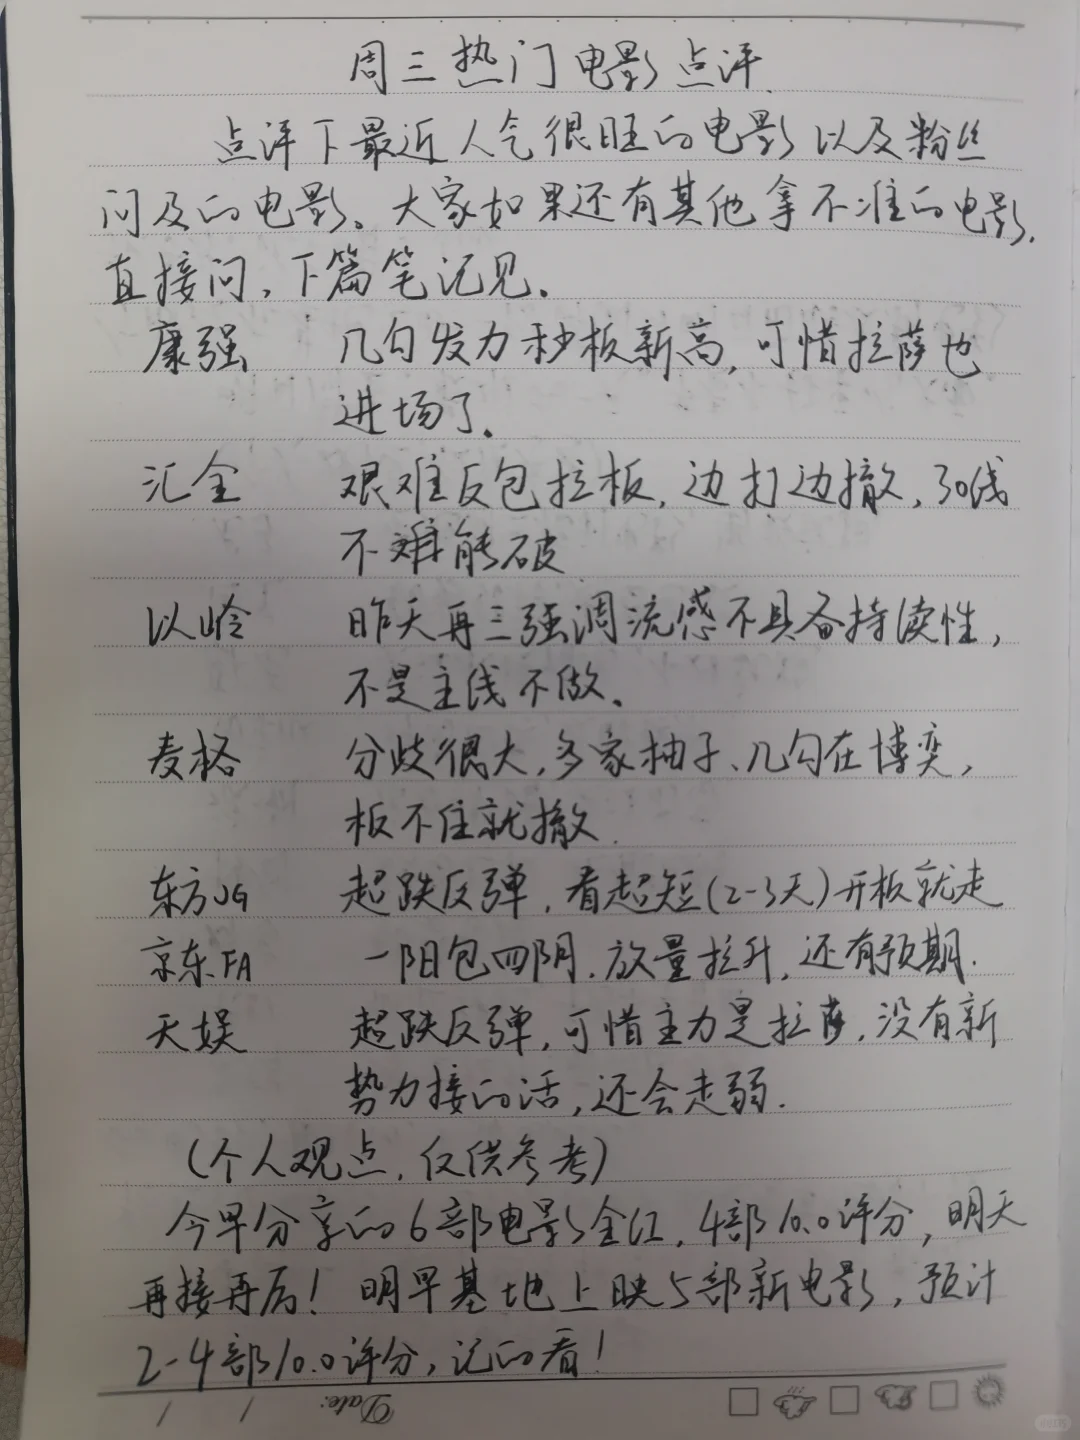 周三热门电影点评.
点评下最近人气很旺的电影以及粉丝
问及的电影。大家如果还有其他拿不准的电影,
直接问,下篇笔记见.
康强 几句发力秒板新高,可惜拉萨也
进场了.
汇金 艰难反包拉板,边打边撤,30线
不难能破
以岭 昨天再三强调流感不具备持续性,
不是主线不做.
麦格 分歧很大,多家柚子、几句在博弈,
板不住就撤.
东方JG 超跌反弹,看超短(2-3天)开板就走
京东FA 一阳包四阴.放量拉升,还有预期.
天娱 超跌反弹,可惜主力是拉萨,没有新
势力接的话,还会走弱.
(个人观点,仅供参考)
今早分享的6部电影全红,4部10.0评分,明天
再接再厉!明早基地上映5部新电影,预计
2-4部10.0评分,记的看!
Date: / /